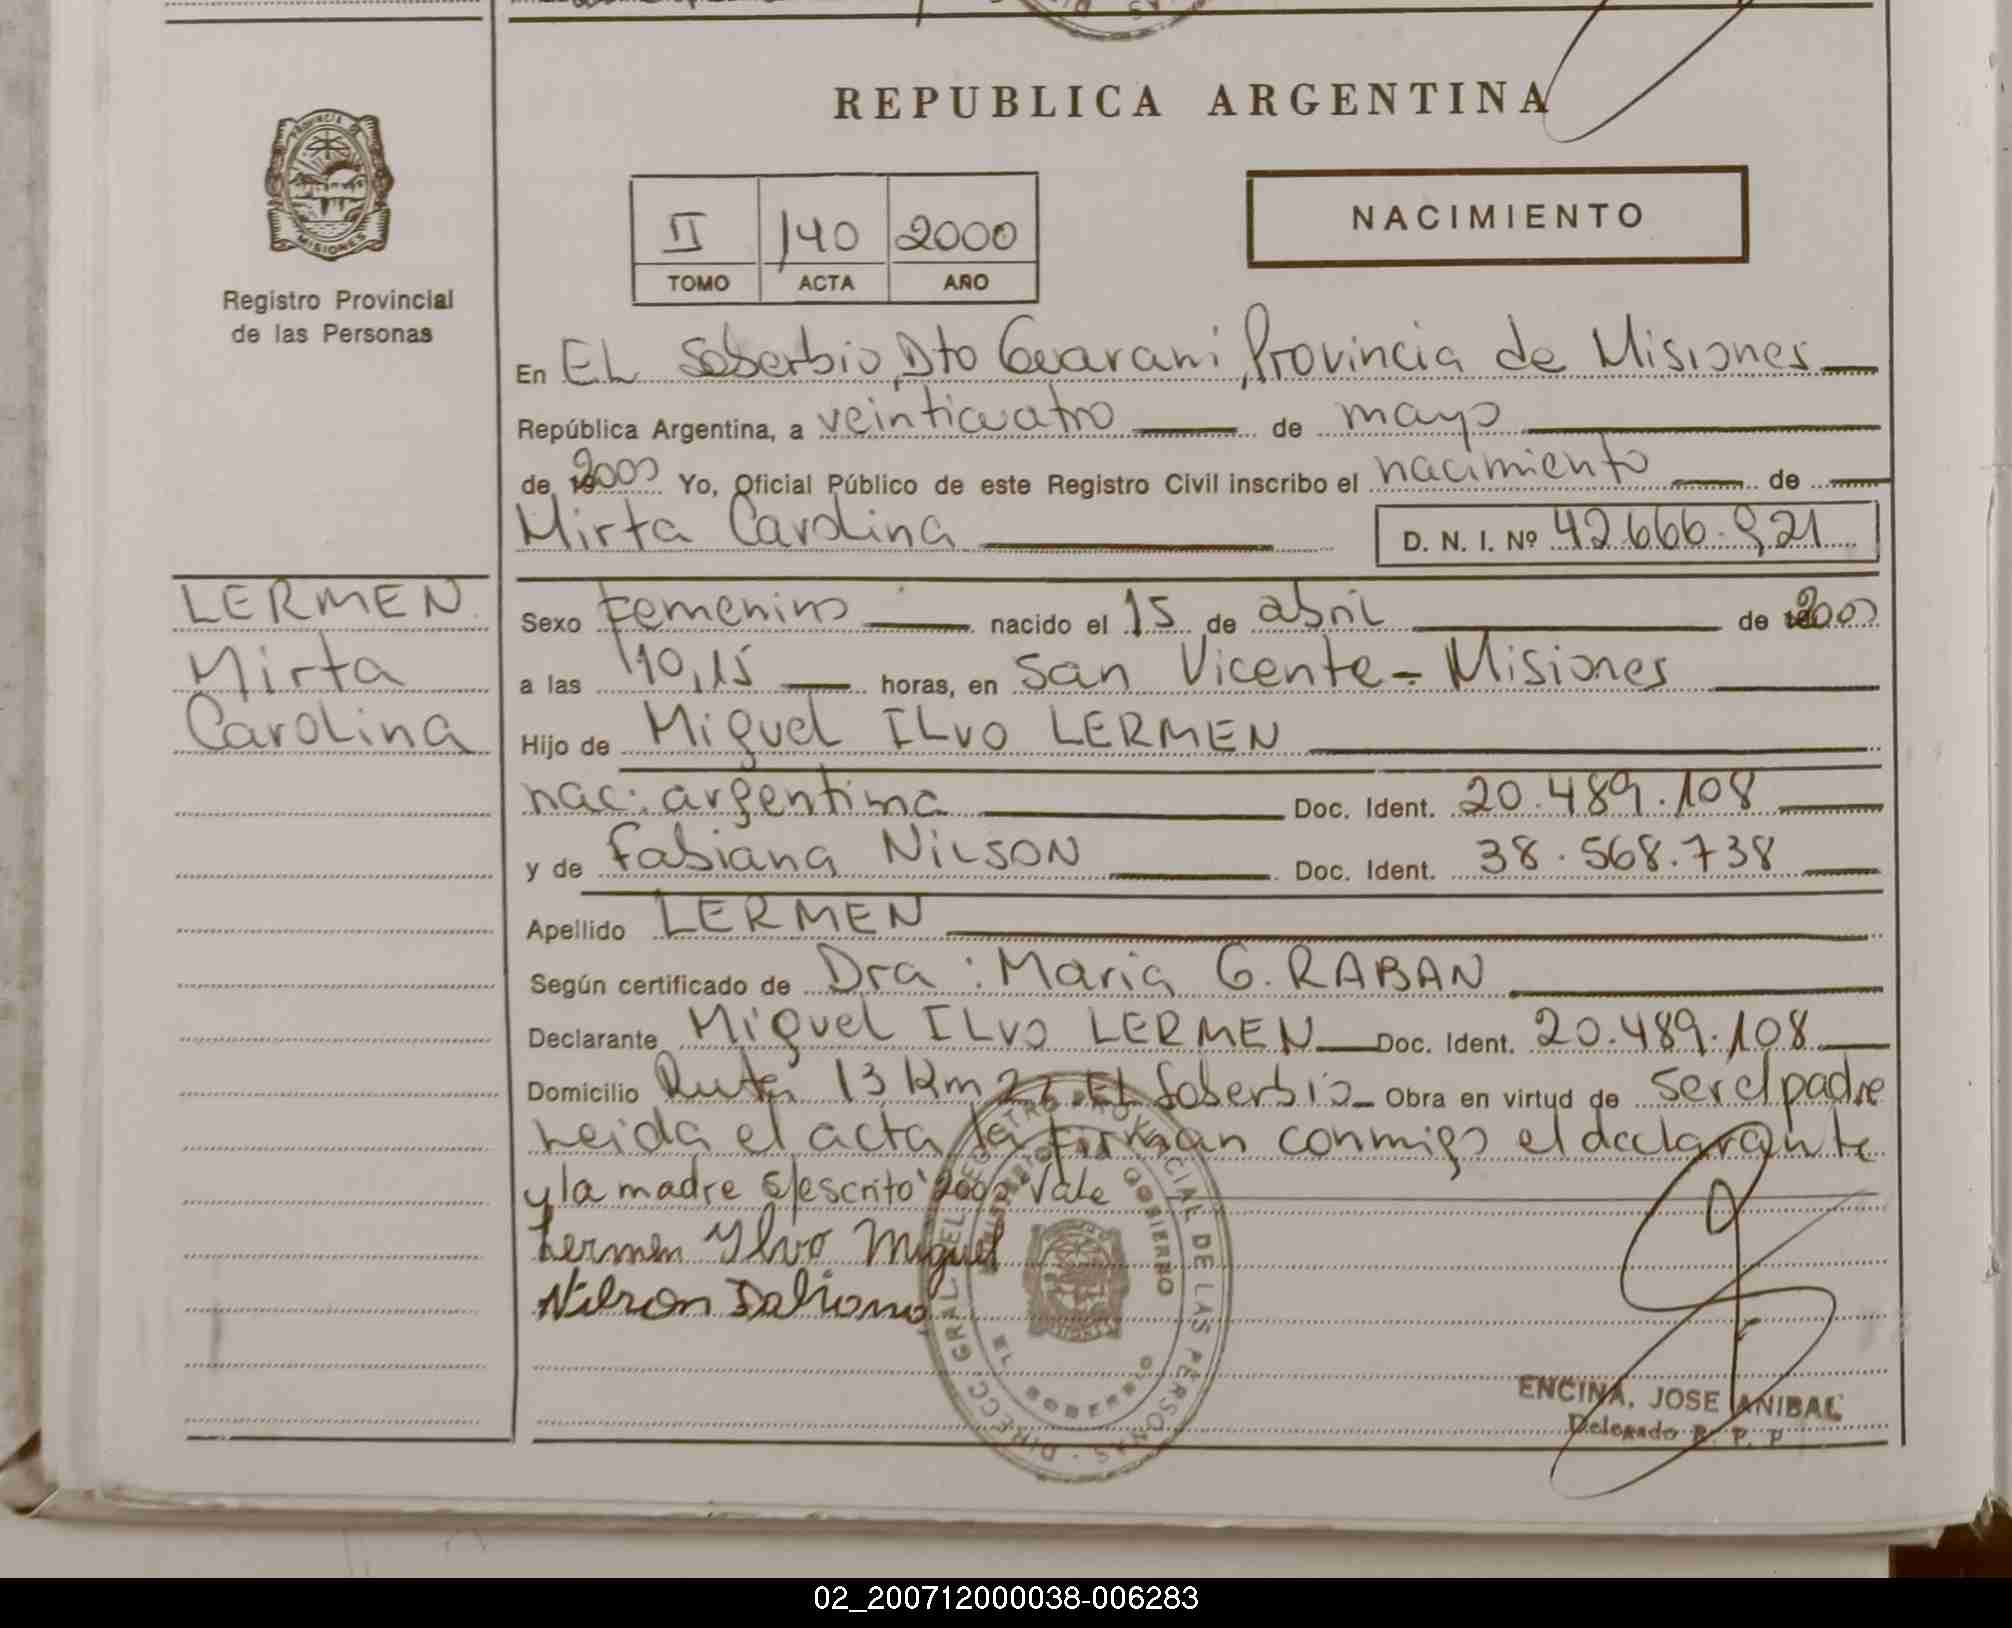 REPUBLICA ARGENTINA
PROVINCIA DE
MISIONES
Registro Provincial
de las Personas
II 140 2000
TOMO ACTA AÑO
NACIMIENTO
En EL Soberbio, Dto Guarani, Provincia de Misiones
República Argentina, a veinticuatro de mayo
de 2000 Yo, Oficial Público de este Registro Civil inscribo el nacimiento de
Mirta Carolina D. N. I. Nº 42.666.921
LERMEN
Mirta
Carolina
Sexo Femenino nacido el 15 de abril de 2000
a las 10,15 horas, en San Vicente - Misiones
Hijo de Miguel ILVO LERMEN
nac: argentina Doc. Ident. 20.489.108
y de Fabiana NILSON Doc. Ident. 38.568.738
Apellido LERMEN
Según certificado de Dra: Maria G. RABAN
Declarante Miguel ILVO LERMEN Doc. Ident. 20.489.108
Domicilio Ruta 13 Km EL Soberbio Obra en virtud de ser el padre
Leida el acta la firman conmigo el declarante
y la madre S/escrito "2000" Vale
Lermen Ylvo Miguel
Nilson Fabiana
DIRECC. GRAL. DEL REGISTRO PROVINCIAL DE LAS PERSONAS
MINISTERIO DE GOBIERNO
EL SOBERBIO
ENCINA, JOSE ANIBAL
Delegado R. P. P
02_200712000038-006283